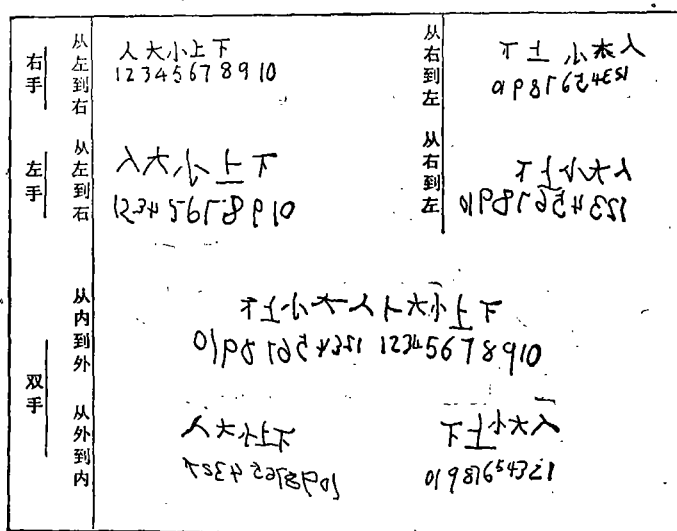 右手
从左到右
人大小上下
12345678910
从右到左
下上小大人
01987654321
左手
从左到右
人大小上下
12345678910
从右到左
下上小大人
01987654321
双手
从内到外
下上小大人人大小上下
01987654321 12345678910
从外到内
人大小上下
下上小大人
01987654321